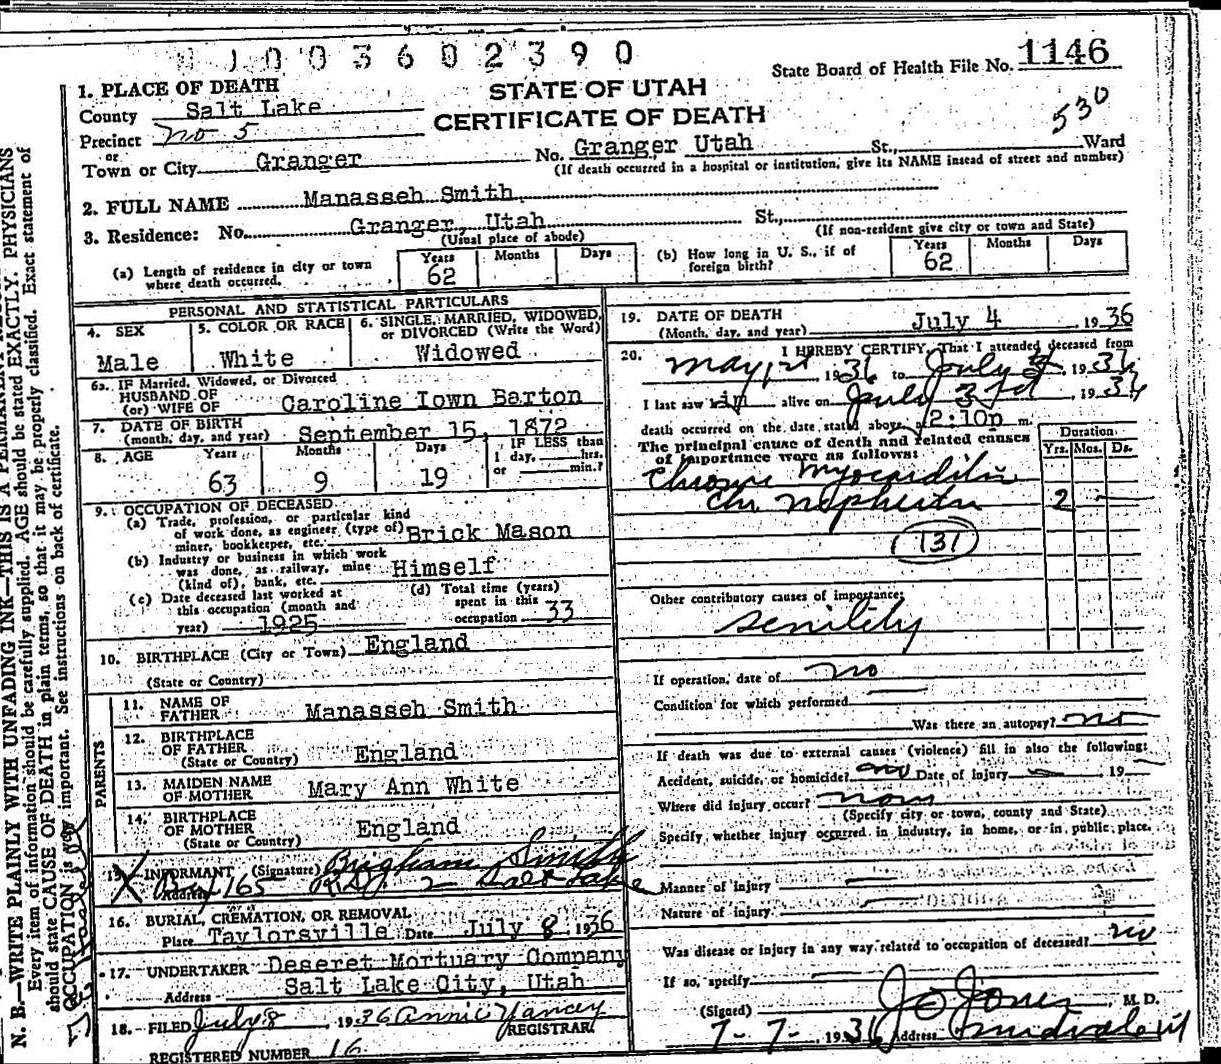 1003602390
State Board of Health File No. 1146
STATE OF UTAH
CERTIFICATE OF DEATH
530
1. PLACE OF DEATH
County Salt Lake
Precinct No 5
or
Town or City Granger No. Granger Utah St., Ward
(If death occurred in a hospital or institution, give its NAME instead of street and number)
2. FULL NAME Manasseh Smith
3. Residence: No. Granger, Utah St.,
(Usual place of abode) (If non-resident give city or town and State)
(a) Length of residence in city or town where death occurred. Years 62 Months Days
(b) How long in U. S., if of foreign birth? Years 62 Months Days
PERSONAL AND STATISTICAL PARTICULARS
4. SEX Male
5. COLOR OR RACE White
6. SINGLE, MARRIED, WIDOWED, or DIVORCED (Write the Word) Widowed
6a. IF Married, Widowed, or Divorced
HUSBAND OF
(or) WIFE OF Caroline Iown Barton
7. DATE OF BIRTH
(month, day, and year) September 15, 1872
8. AGE Years 63 Months 9 Days 19 IF LESS than 1 day, hrs. or min.?
9. OCCUPATION OF DECEASED
(a) Trade, profession, or particular kind
of work done, as engineer (type of)
miner, bookkeeper, etc. Brick Mason
(b) Industry or business in which work
was done, as railway, mine
(kind of), bank, etc. Himself
(c) Date deceased last worked at
this occupation (month and
year) 1925
(d) Total time (years)
spent in this
occupation 33
10. BIRTHPLACE (City or Town) England
(State or Country)
PARENTS
11. NAME OF
FATHER Manasseh Smith
12. BIRTHPLACE
OF FATHER England
(State or Country)
13. MAIDEN NAME
OF MOTHER Mary Ann White
14. BIRTHPLACE
OF MOTHER England
(State or Country)
15. INFORMANT (Signature) Brigham Smith
Address Box 165 R.D. 2 Salt Lake
16. BURIAL, CREMATION, OR REMOVAL
Place Taylorsville Date July 8, 1936
17. UNDERTAKER Deseret Mortuary Company
Address Salt Lake City, Utah
18. FILED July 8, 1936 Annie Yancey
REGISTRAR.
REGISTERED NUMBER 16
19. DATE OF DEATH
(Month, day, and year) July 4, 1936
20. I HEREBY CERTIFY, That I attended deceased from
May 1st, 1936 to July, 1936
I last saw him alive on July 3rd, 1936
death occurred on the date stated above 2:10p m.
The principal cause of death and related causes
of importance were as follows:
Duration
Yrs. Mos. Ds.
Chronic Myocarditis
Chr Nephritis 2
131
Other contributory causes of importance:
Senility
If operation, date of no
Condition for which performed
Was there an autopsy? no
If death was due to external causes (violence) fill in also the following:
Accident, suicide, or homicide? no Date of injury 19
Where did injury occur?
(Specify city or town, county and State)
Specify, whether injury occurred in industry, in home, or in public place.
Manner of injury
Nature of injury
Was disease or injury in any way related to occupation of deceased? no
If so, specify
(Signed) J O Jones, M. D.
7-7-, 1936 Address Midvale Ut
N. B.—WRITE PLAINLY WITH UNFADING INK—THIS IS A PERMANENT
Every item of information should be carefully supplied. AGE should be stated EXACTLY. PHYSICIANS
should state CAUSE OF DEATH in plain terms, so that it may be properly classified. Exact statement of
OCCUPATION is very important. See instructions on back of certificate.